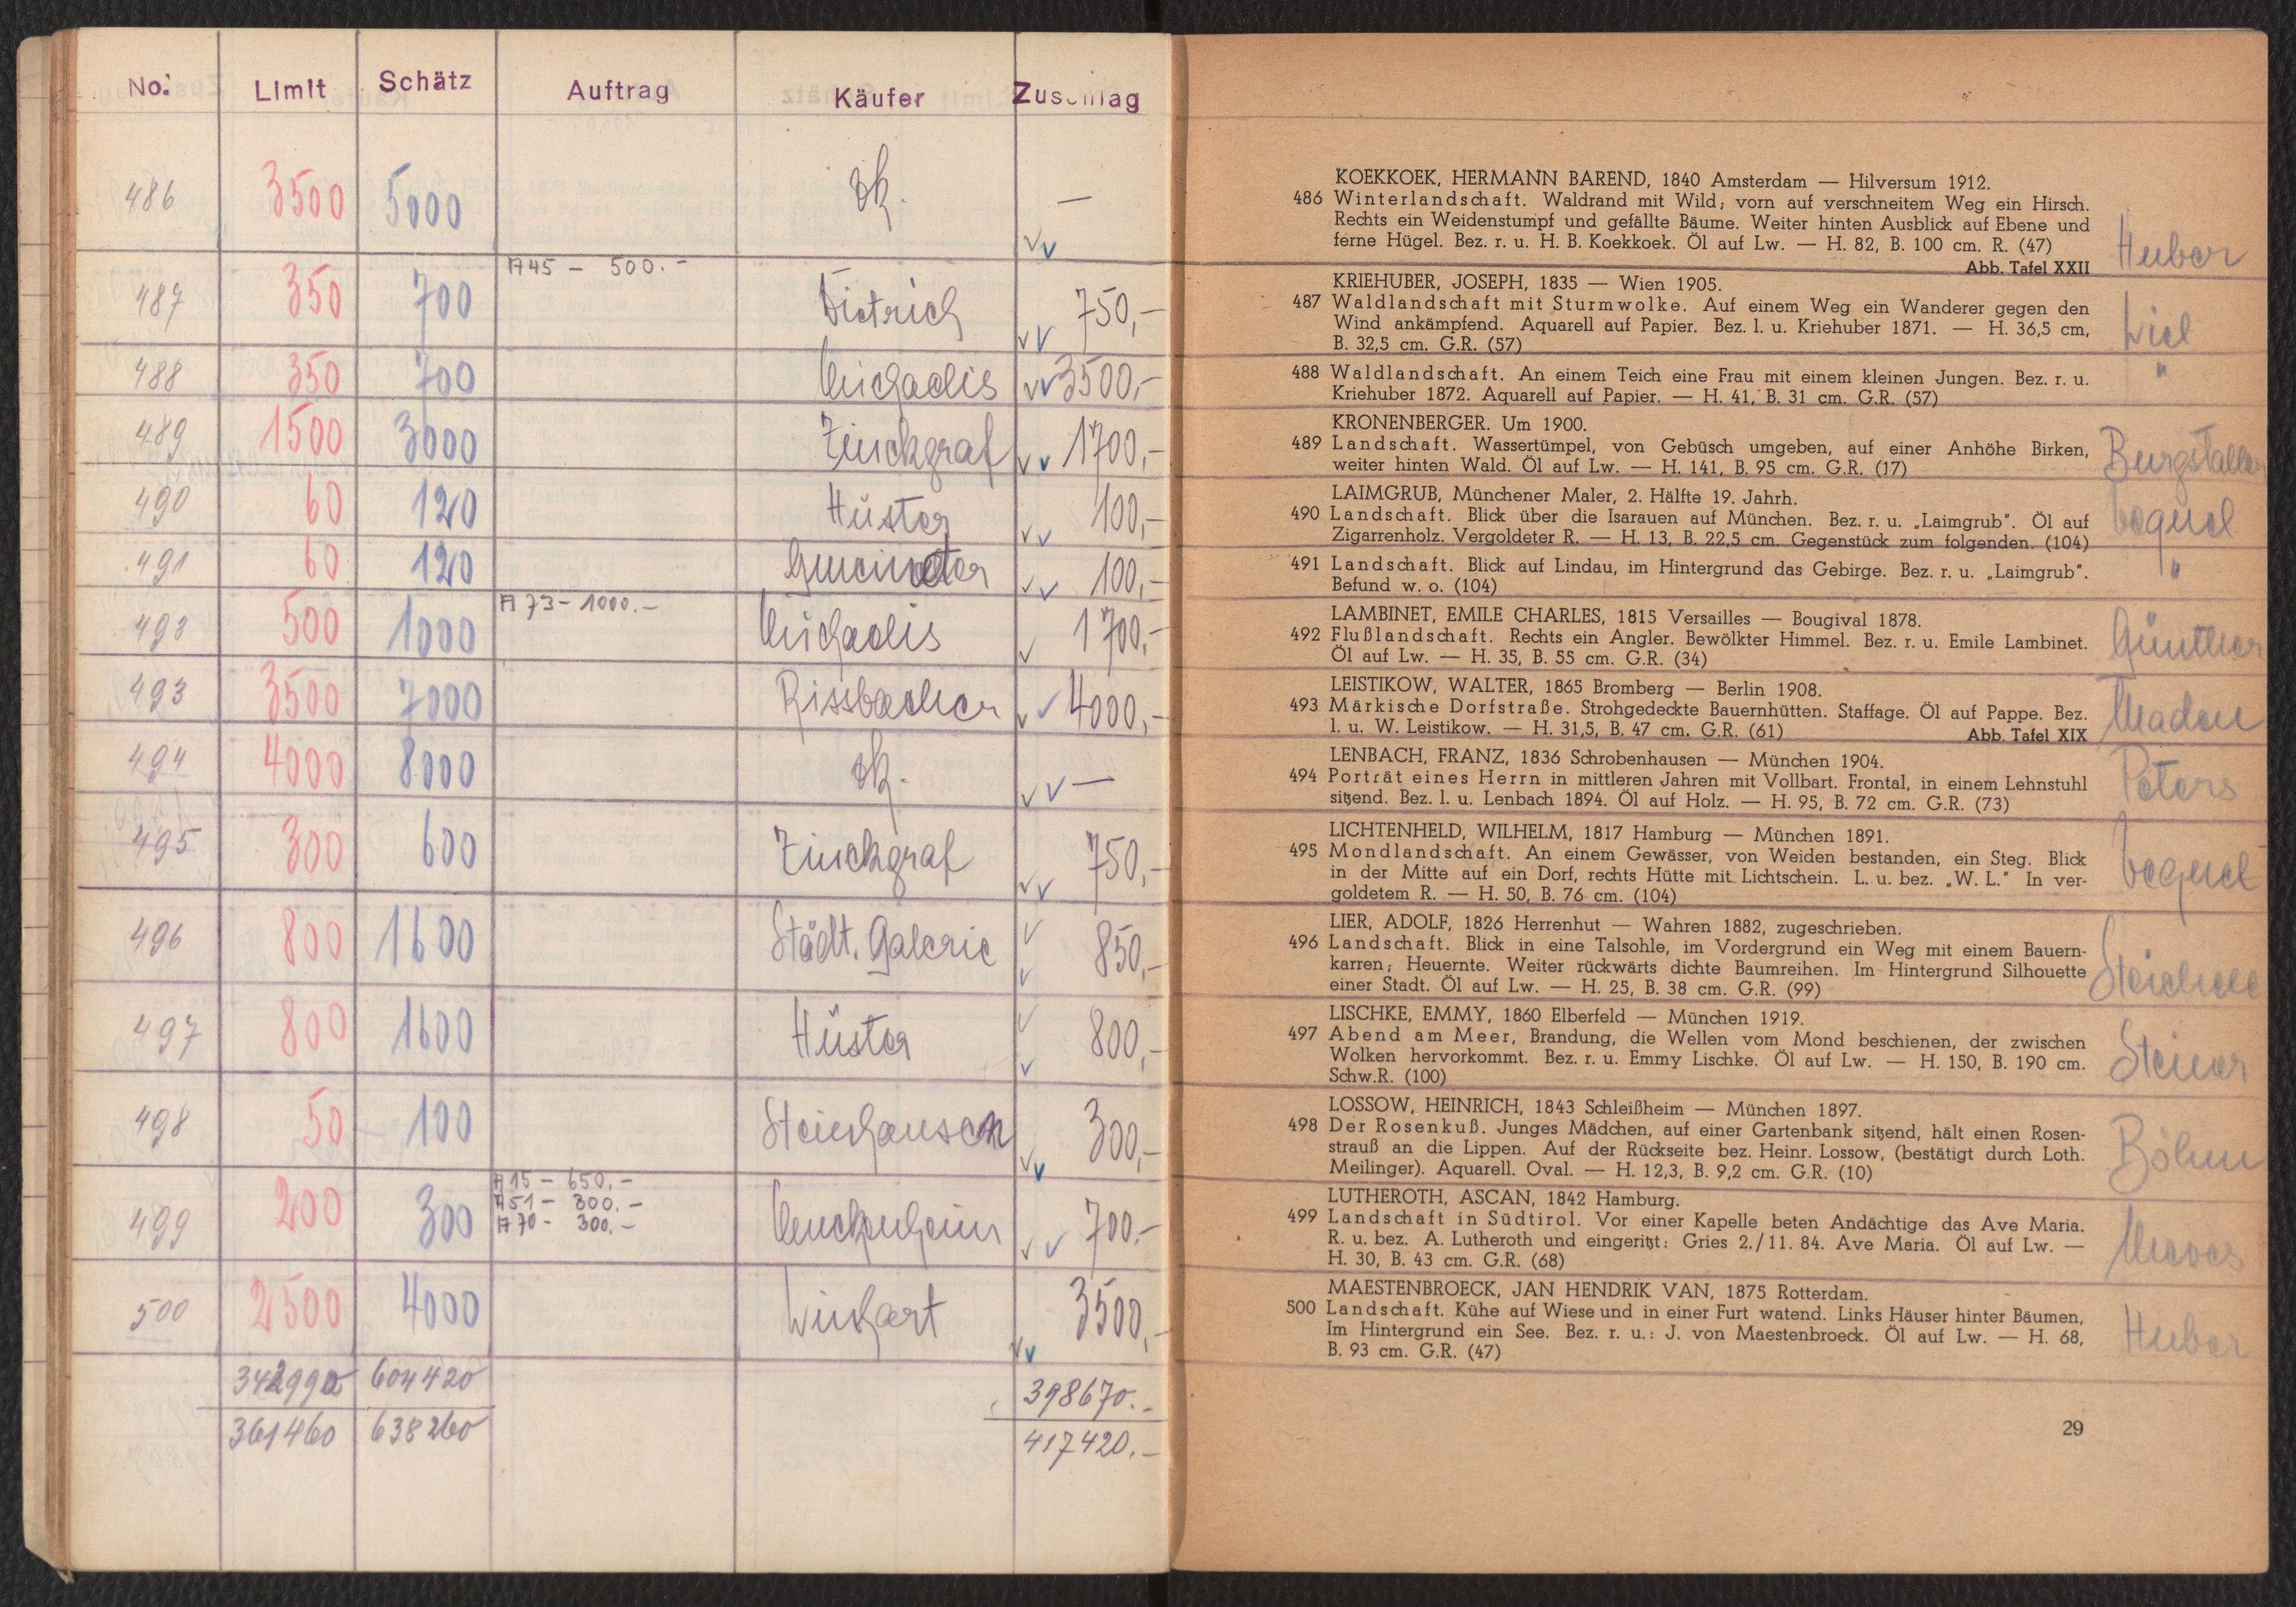 No. Limit Schätz Auftrag Käufer Zuschlag
486 3500 5000 —
487 350 700 A 45 — 500.- Dietrich 750,-
488 350 700 Michaelis 3500,-
489 1500 3000 Zinckgraf 1700,-
490 60 120 Hüster 100,-
491 60 120 100,-
492 500 1000 A 73 - 1000.- Michaelis 1700,-
493 3500 7000 Rissbacher 4000,-
494 4000 8000 —
495 300 600 Zinckgraf 750,-
496 800 1600 Städt. Galerie 850,-
497 800 1600 Hüster 800,-
498 50 100 Steinhausen 300,-
A 15 - 650.-
A 51 - 300.-
A 70 - 300.-
499 200 300 700.-
500 2500 4000 Winhart 3500,-
342990 604420 398670.-
361460 638260 417420.-
KOEKKOEK, HERMANN BAREND, 1840 Amsterdam — Hilversum 1912.
486 Winterlandschaft. Waldrand mit Wild; vorn auf verschneitem Weg ein Hirsch.
Rechts ein Weidenstumpf und gefällte Bäume. Weiter hinten Ausblick auf Ebene und
ferne Hügel. Bez. r. u. H. B. Koekkoek. Öl auf Lw. — H. 82, B. 100 cm. R. (47)
Huber
Abb. Tafel XXII
KRIEHUBER, JOSEPH, 1835 — Wien 1905.
487 Waldlandschaft mit Sturmwolke. Auf einem Weg ein Wanderer gegen den
Wind ankämpfend. Aquarell auf Papier. Bez. l. u. Kriehuber 1871. — H. 36,5 cm,
B. 32,5 cm. G.R. (57)
488 Waldlandschaft. An einem Teich eine Frau mit einem kleinen Jungen. Bez. r. u. "
Kriehuber 1872. Aquarell auf Papier. — H. 41, B. 31 cm. G.R. (57)
KRONENBERGER. Um 1900.
489 Landschaft. Wassertümpel, von Gebüsch umgeben, auf einer Anhöhe Birken,
weiter hinten Wald. Öl auf Lw. — H. 141, B. 95 cm. G.R. (17)
Burgstaller
LAIMGRUB, Münchener Maler, 2. Hälfte 19. Jahrh.
490 Landschaft. Blick über die Isarauen auf München. Bez. r. u. „Laimgrub". Öl auf
Zigarrenholz. Vergoldeter R. — H. 13, B. 22,5 cm. Gegenstück zum folgenden. (104)
491 Landschaft. Blick auf Lindau, im Hintergrund das Gebirge. Bez. r. u. „Laimgrub". "
Befund w. o. (104)
LAMBINET, EMILE CHARLES, 1815 Versailles — Bougival 1878.
492 Flußlandschaft. Rechts ein Angler. Bewölkter Himmel. Bez. r. u. Emile Lambinet.
Öl auf Lw. — H. 35, B. 55 cm. G.R. (34)
Günther
LEISTIKOW, WALTER, 1865 Bromberg — Berlin 1908.
493 Märkische Dorfstraße. Strohgedeckte Bauernhütten. Staffage. Öl auf Pappe. Bez.
l. u. W. Leistikow. — H. 31,5, B. 47 cm. G.R. (61)
Abb. Tafel XIX
LENBACH, FRANZ, 1836 Schrobenhausen — München 1904.
494 Porträt eines Herrn in mittleren Jahren mit Vollbart. Frontal, in einem Lehnstuhl
sitzend. Bez. l. u. Lenbach 1894. Öl auf Holz. — H. 95, B. 72 cm. G.R. (73)
Peters
LICHTENHELD, WILHELM, 1817 Hamburg — München 1891.
495 Mondlandschaft. An einem Gewässer, von Weiden bestanden, ein Steg. Blick
in der Mitte auf ein Dorf, rechts Hütte mit Lichtschein. L. u. bez. „W. L." In ver-
goldetem R. — H. 50, B. 76 cm. (104)
LIER, ADOLF, 1826 Herrenhut — Wahren 1882, zugeschrieben.
496 Landschaft. Blick in eine Talsohle, im Vordergrund ein Weg mit einem Bauern-
karren; Heuernte. Weiter rückwärts dichte Baumreihen. Im Hintergrund Silhouette
einer Stadt. Öl auf Lw. — H. 25, B. 38 cm. G.R. (99)
LISCHKE, EMMY, 1860 Elberfeld — München 1919.
497 Abend am Meer, Brandung, die Wellen vom Mond beschienen, der zwischen
Wolken hervorkommt. Bez. r. u. Emmy Lischke. Öl auf Lw. — H. 150, B. 190 cm.
Schw.R. (100)
Steiner
LOSSOW, HEINRICH, 1843 Schleißheim — München 1897.
498 Der Rosenkuß. Junges Mädchen, auf einer Gartenbank sitzend, hält einen Rosen-
strauß an die Lippen. Auf der Rückseite bez. Heinr. Lossow, (bestätigt durch Loth.
Meilinger). Aquarell. Oval. — H. 12,3, B. 9,2 cm. G.R. (10)
Böhm
LUTHEROTH, ASCAN, 1842 Hamburg.
499 Landschaft in Südtirol. Vor einer Kapelle beten Andächtige das Ave Maria.
R. u. bez. A. Lutheroth und eingeritzt: Gries 2./11. 84. Ave Maria. Öl auf Lw. —
H. 30, B. 43 cm. G.R. (68)
MAESTENBROECK, JAN HENDRIK VAN, 1875 Rotterdam.
500 Landschaft. Kühe auf Wiese und in einer Furt watend. Links Häuser hinter Bäumen,
Im Hintergrund ein See. Bez. r. u.: J. von Maestenbroeck. Öl auf Lw. — H. 68,
B. 93 cm. G.R. (47)
Huber
29